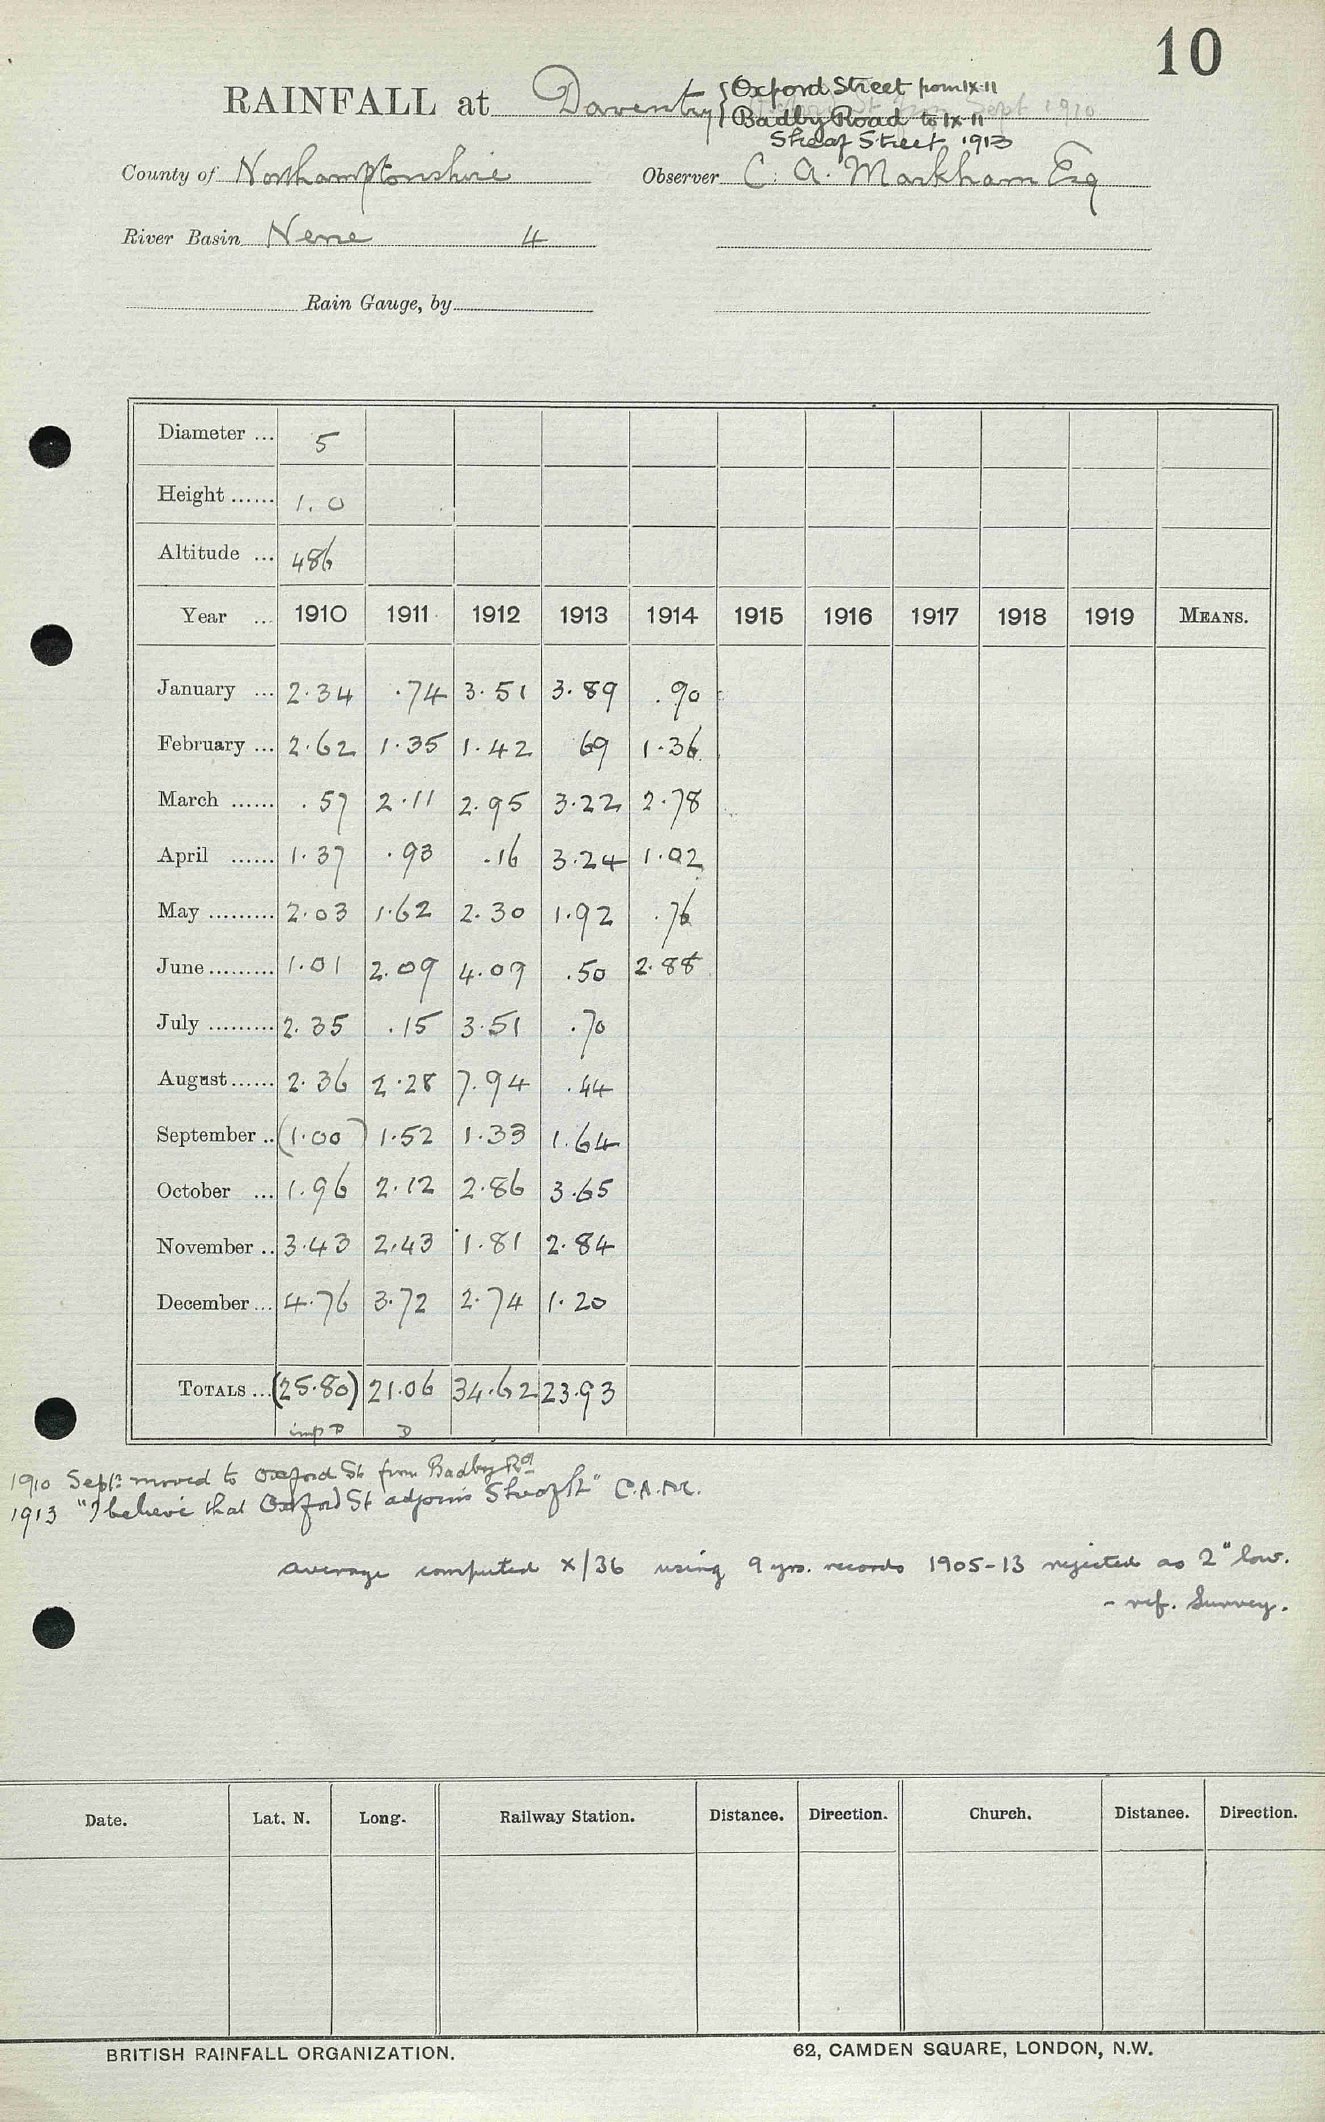 10
RAINFALL at Daventry { Oxford Street from IX·11
Badby Road to IX·11
Sheaf Street 1913
County of Northamptonshire Observer C. A. Markham Esq
River Basin Nene 4
Rain Gauge, by
Diameter ... 5
Height ...... 1.0
Altitude ... 486
Year ... 1910 1911 1912 1913 1914 1915 1916 1917 1918 1919 MEANS.
January ... 2.34 .74 3.51 3.89 .90
February ... 2.62 1.35 1.42 69 1.36
March ...... .57 2.11 2.95 3.22 2.78
April ...... 1.37 .93 .16 3.24 1.02
May ......... 2.03 1.62 2.30 1.92 .76
June ......... 1.01 2.09 4.09 .50 2.88
July ......... 2.35 .15 3.51 .70
August ...... 2.36 2.28 7.94 .44
September .. (1.00) 1.52 1.33 1.64
October ... 1.96 2.12 2.86 3.65
November .. 3.43 2.43 1.81 2.84
December ... 4.76 3.72 2.74 1.20
TOTALS ... (25.80) 21.06 34.62 23.93
imp D D
1910 Sept: moved to Oxford St from Badby Rd
1913 "I believe that Oxford St adjoins Sheaf St" C.A.M.
average computed x/36 using 9 yrs. records 1905-13 rejected as 2" low.
- ref. Survey.
Date. Lat. N. Long. Railway Station. Distance. Direction. Church. Distance. Direction.
BRITISH RAINFALL ORGANIZATION. 62, CAMDEN SQUARE, LONDON, N.W.